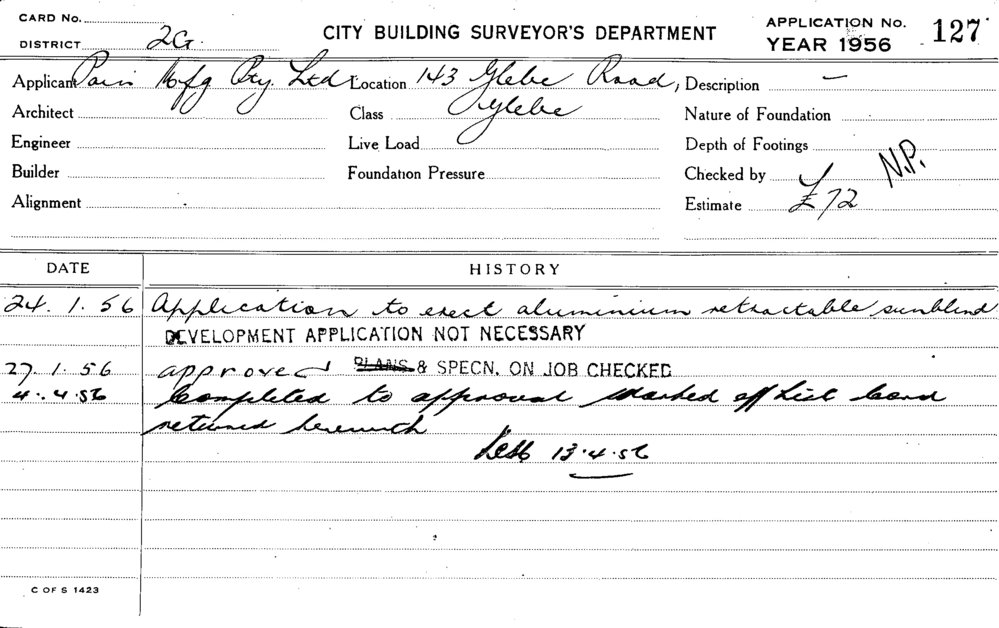 CARD No.
DISTRICT 2G.
CITY BUILDING SURVEYOR'S DEPARTMENT
APPLICATION No. 127
YEAR 1956
Applicant Mfg Pty Ltd Location 143 Glebe Road, Description —
Architect Class Glebe Nature of Foundation
Engineer Live Load Depth of Footings
Builder Foundation Pressure Checked by N.P.
Alignment Estimate £72
DATE HISTORY
24.1.56 Application to erect aluminium retractable sunblind
DEVELOPMENT APPLICATION NOT NECESSARY
27.1.56 approved PLANS & SPECN. ON JOB CHECKED
4.4.56 Completed to approval Marked off List Card
returned herewith
13.4.56
C OF S 1423